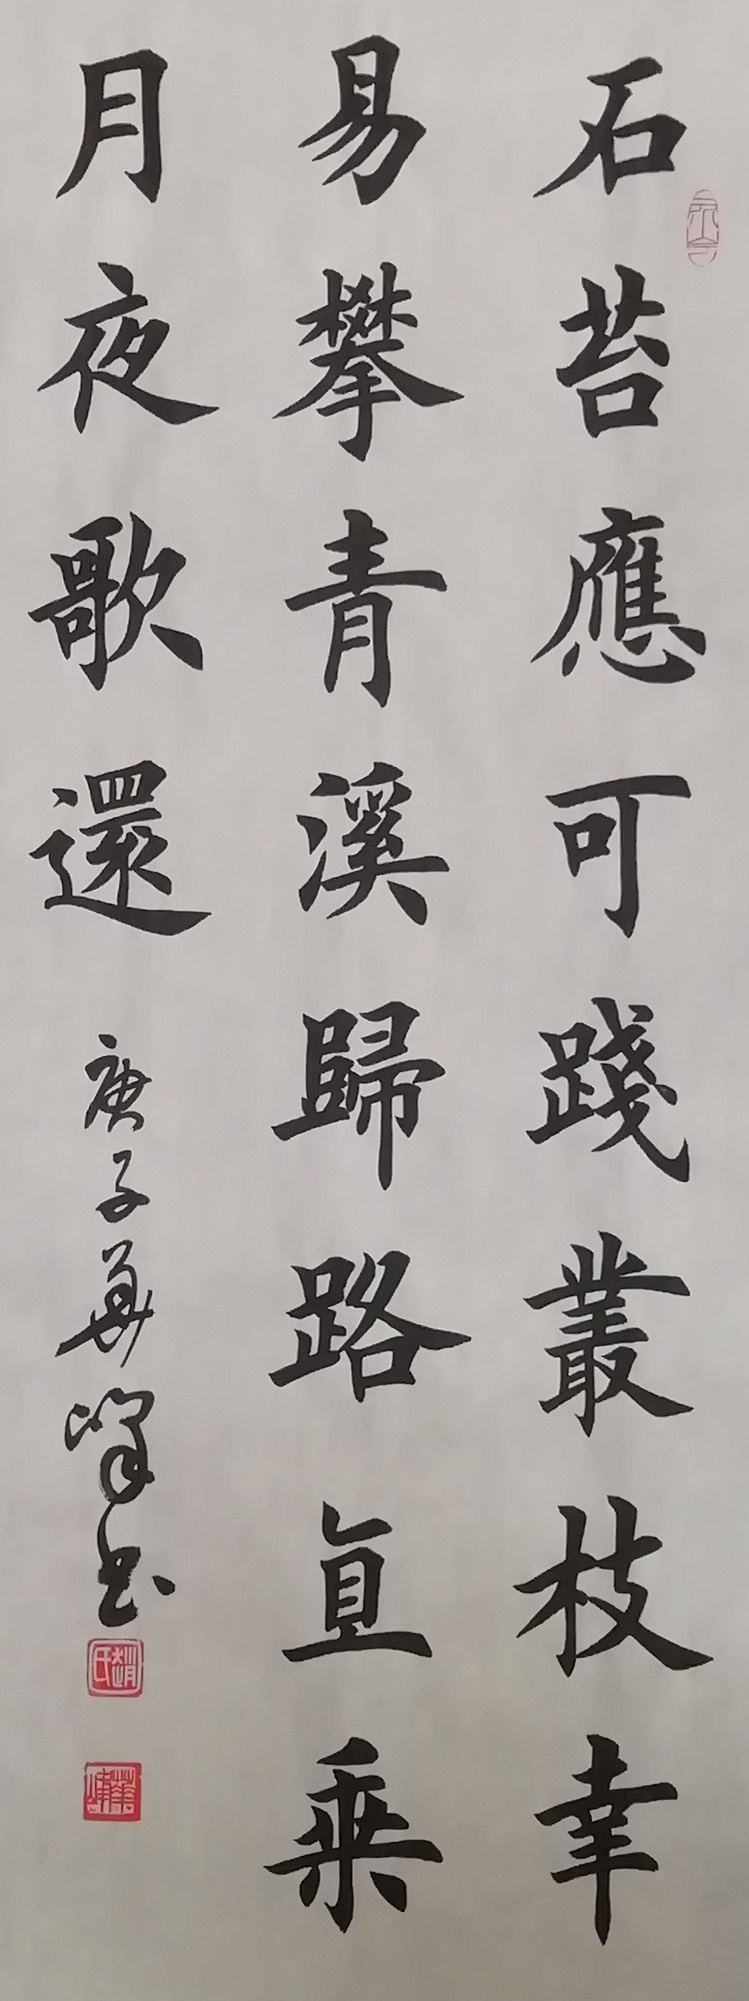 石苔應可踐叢枝幸
易攀青溪歸路直乗
月夜歌還
庚子華峰书
趙氏